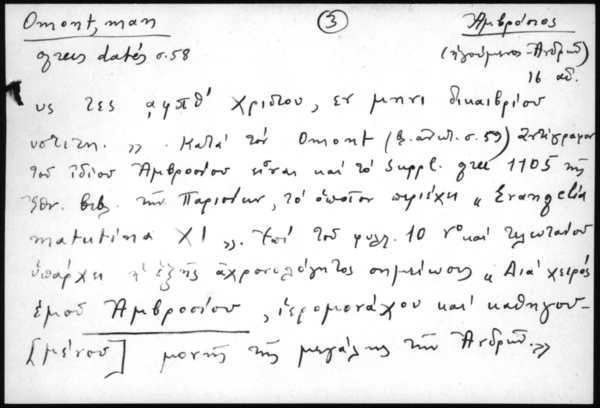 Omont, man ③ Ἀμβρόσιος
grecs datés σ. 58 (ἡγούμενος Ἀνδρῶ)
16 αἰ.
υς τες ͵αφπθ' Χριστου, εν μηνι δικαιβρίου
». Κατά τόν Omont (ἔ. ἀνωτ. σ. 59) ἀντίγραφον
τοῦ ἰδίου Ἀμβροσίου εἶναι καί τό Suppl. grec 1105 τῆς
Ἐθν. βιβ. τῶν Παρισίων, τό ὁποῖον περιέχει « Evangelia
matutina XI ». Ἐπί τοῦ φυλλ. 10 vº καί τελευταίου
ὑπάρχει ἡ ἑξῆς ἀχρονολόγητος σημείωσις « Διά χειρός
ἐμοῦ Ἀμβροσίου, ἱερομονάχου καί καθηγου-
[μένου] μονῆς τῆς μεγάλης τῶν Ἀνδρῶ. »